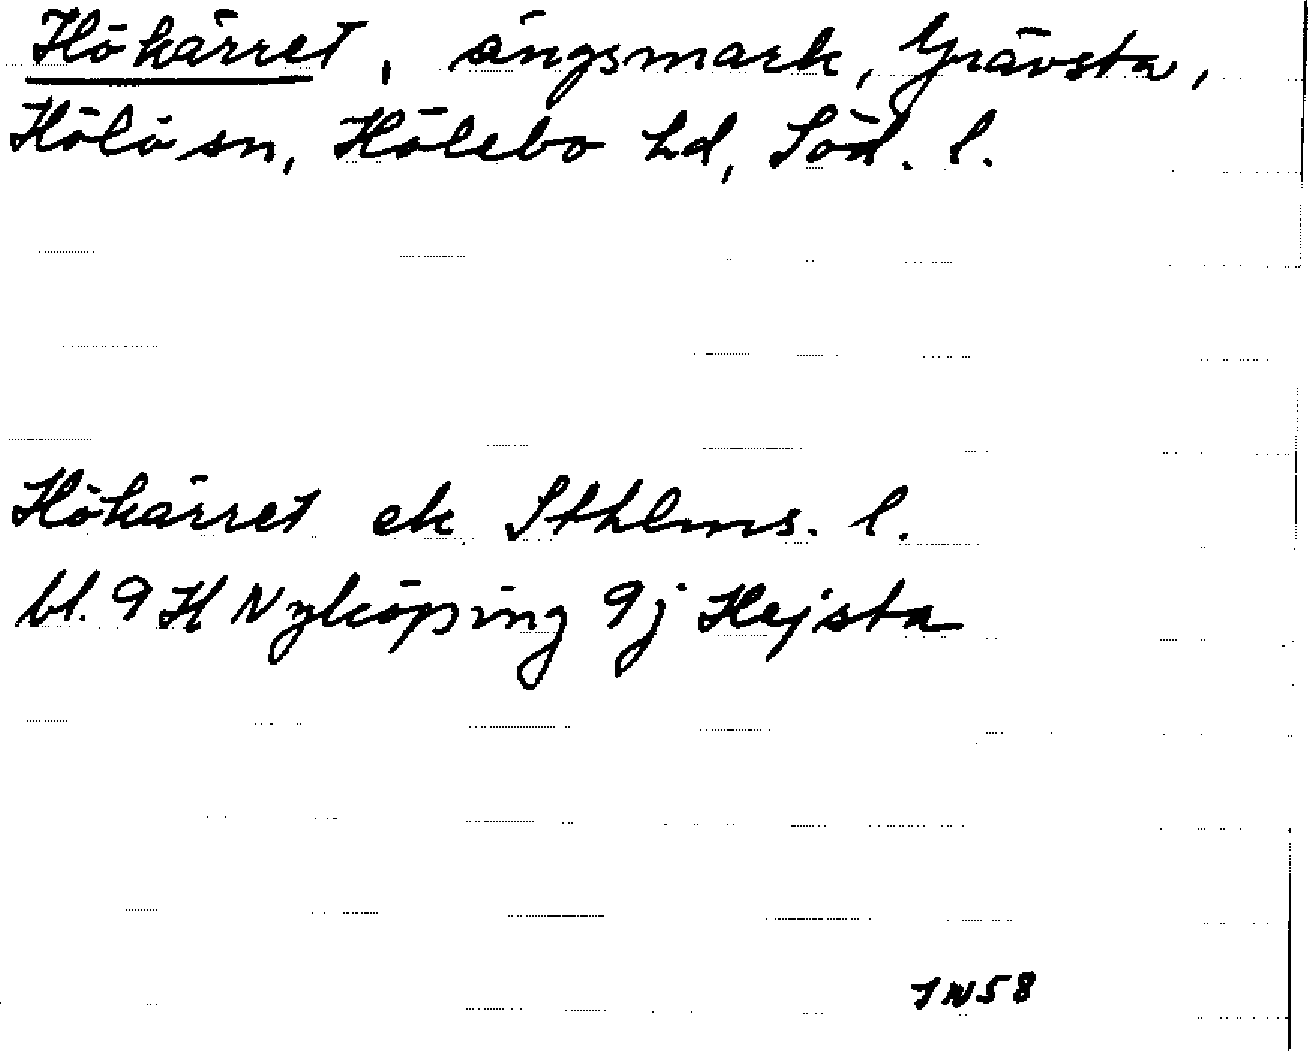 Hökärret, ängsmark, Grävsta,
Hölö sn, Hölebo hd, Söd. l.
Hökärret ek Sthlms. l.
bl. 9 H Nyköping 9j Hejsta
JW58